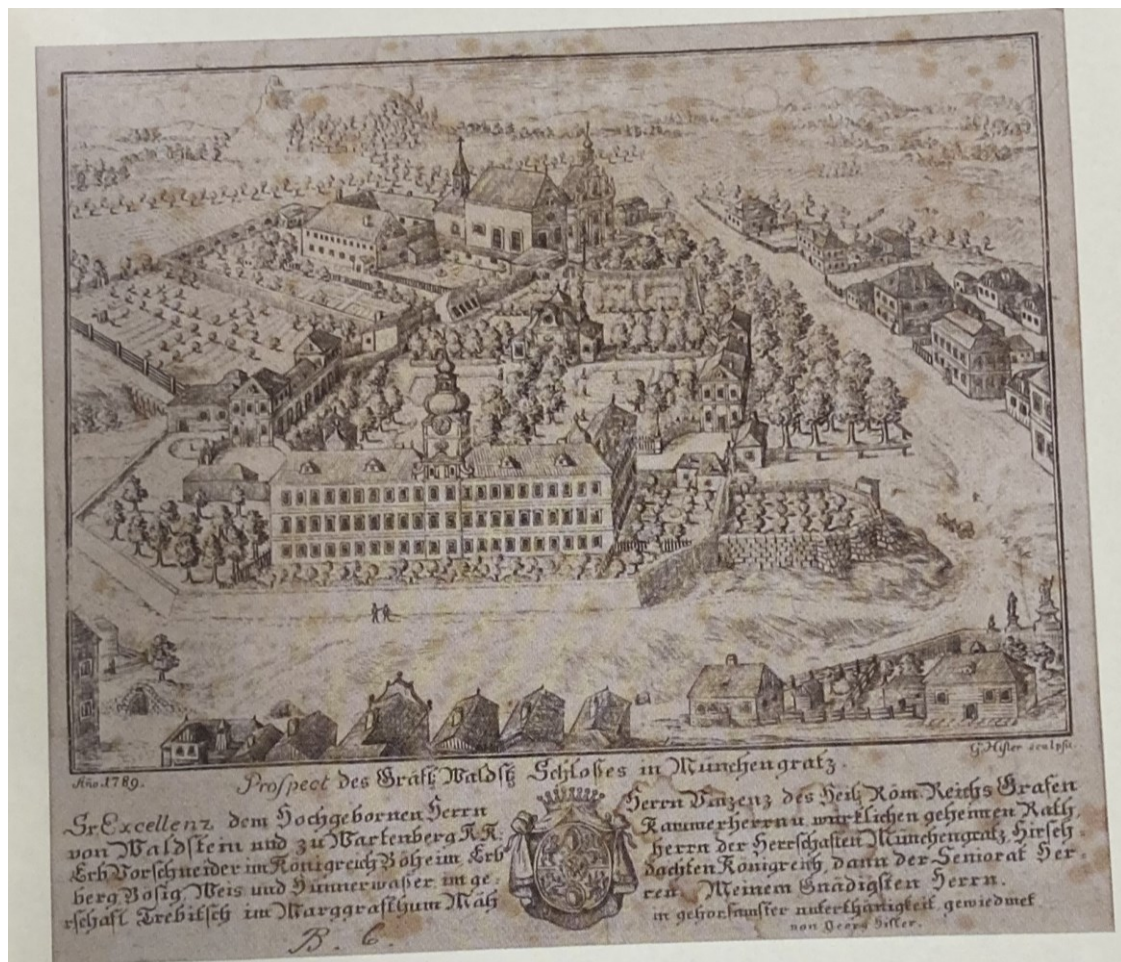 Año. 1789.
G. Hisler sculpsit.
Prospect des Gräfl. Waldst. Schloßes in Münchengratz.
Sr Excellenz dem Hochgebornen Herrn
von Waldstein und zu Wartenberg K.K.
Erb Vorschneider im Königreich Böheim Erb
berg Bosig, Weis und Hünnerwaßer im ge-
rschaft Trebitsch im Marggrafthum Mäh
Herrn Vinzenz des Heil. Röm. Reichs Grafen
Kammerherrn u. würklichen geheimen Rath,
herrn der Herrschaften Münchengratz, Hirsch-
dachten Königreich, dann der Seniorat Her-
ren. Meinem Gnädigsten Herrn.
in gehorsamster unterthänigkeit gewiedmet
von Georg Hisler.
B. 6.